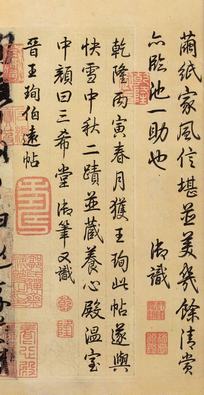 繭紙家風信堪並美幾餘清賞
亦臨池一助也　御識
乾隆丙寅春月獲王珣此帖遂與
快雪中秋二蹟並藏養心殿溫室
中顏曰三希堂　御筆又識
晉王珣伯遠帖
乾
隆